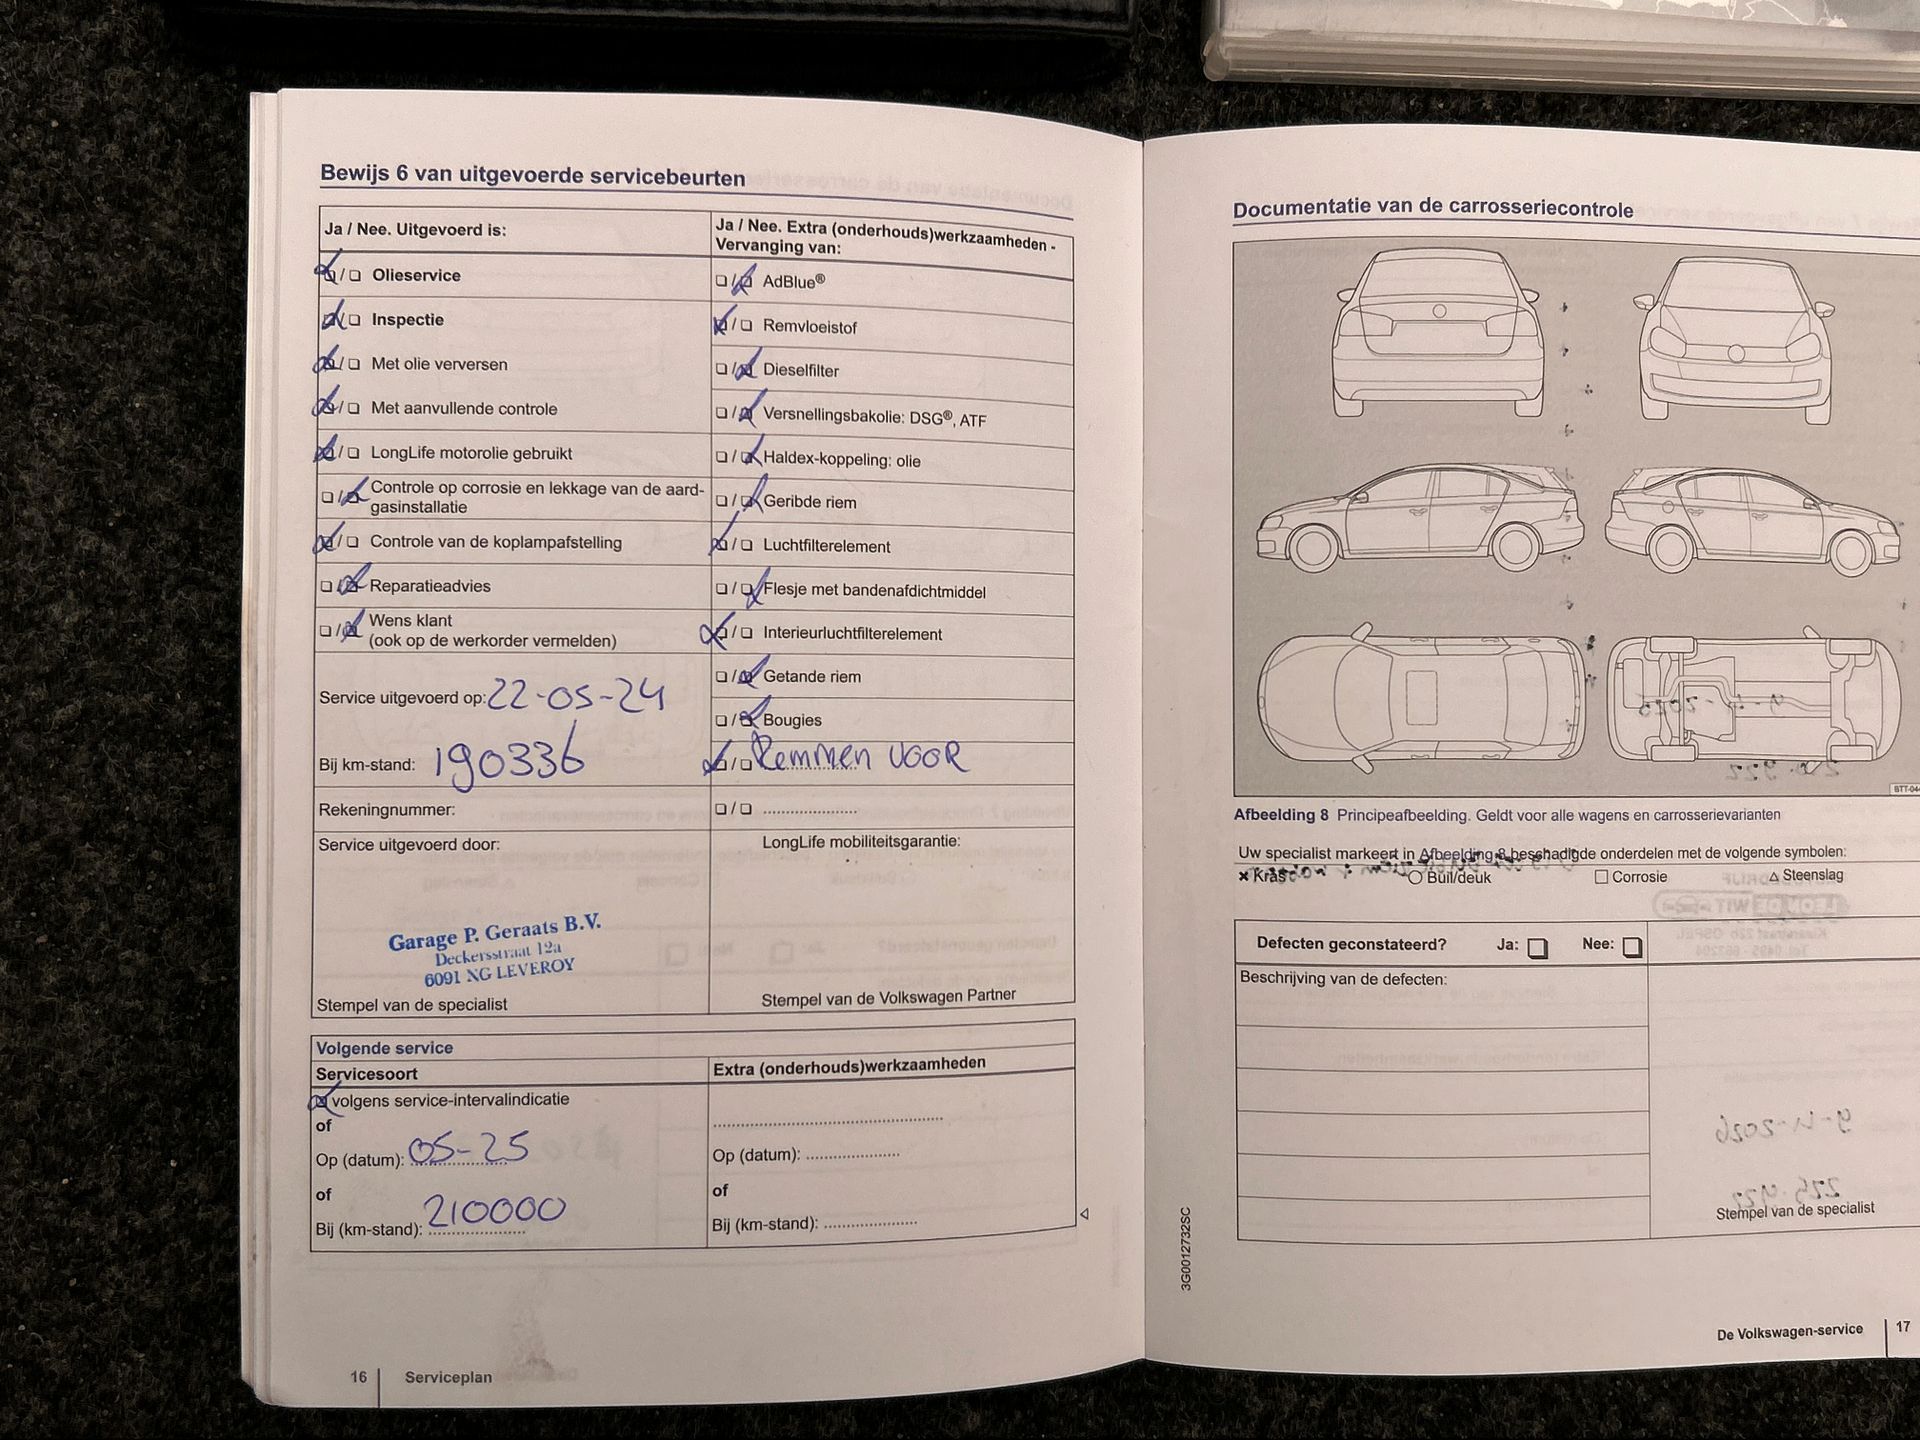 Bewijs 6 van uitgevoerde servicebeurten
Ja / Nee. Uitgevoerd is:
Olieservice
Inspectie
Met olie verversen
Met aanvullende controle
LongLife motorolie gebruikt
Controle op corrosie en lekkage van de aard-
gasinstallatie
Controle van de koplampafstelling
Reparatieadvies
Wens klant
(ook op de werkorder vermelden)
Service uitgevoerd op: 22-05-24
Bij km-stand: 190336
Rekeningnummer:
Service uitgevoerd door:
Garage P. Geraats B.V.
Deckersstraat 12a
6091 NG LEVEROY
Stempel van de specialist
Ja / Nee. Extra (onderhouds)werkzaamheden -
Vervanging van:
AdBlue®
Remvloeistof
Dieselfilter
Versnellingsbakolie: DSG®, ATF
Haldex-koppeling: olie
Geribde riem
Luchtfilterelement
Flesje met bandenafdichtmiddel
Interieurluchtfilterelement
Getande riem
Bougies
Remmen VOOR
LongLife mobiliteitsgarantie:
Stempel van de Volkswagen Partner
Volgende service
Servicesoort
volgens service-intervalindicatie
of
Op (datum): 05-25
of
Bij (km-stand): 210000
Extra (onderhouds)werkzaamheden
Op (datum):
of
Bij (km-stand):
16 Serviceplan
Documentatie van de carrosseriecontrole
Afbeelding 8 Principeafbeelding. Geldt voor alle wagens en carrosserievarianten
Uw specialist markeert in Afbeelding 8 beschadigde onderdelen met de volgende symbolen:
Kras
Buil/deuk
Corrosie
Steenslag
Defecten geconstateerd? Ja: Nee:
Beschrijving van de defecten:
Stempel van de specialist
3G0012732SC
De Volkswagen-service 17